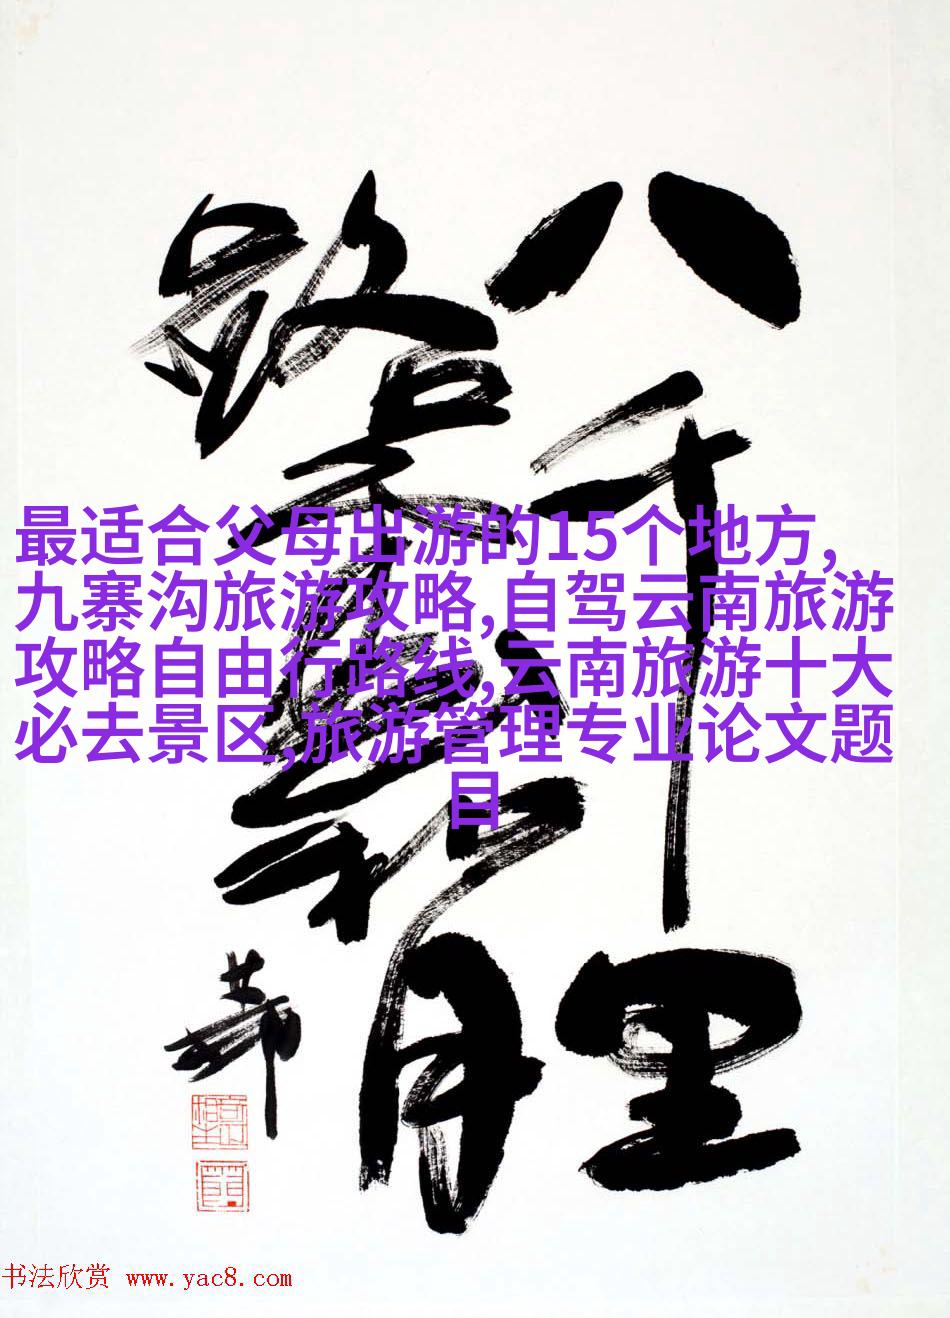 八千里
路云和月
最适合父母出游的15个地方,
九寨沟旅游攻略,自驾云南旅游
攻略自由行路线,云南旅游十大
必去景区,旅游管理专业论文题
目
书法欣赏 www.yac8.com